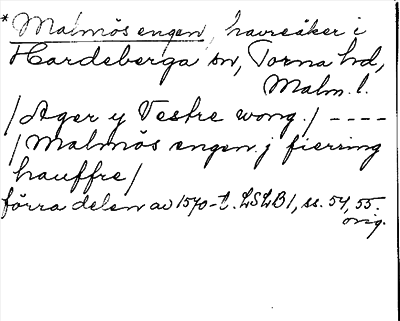 *Malmös engen, havreåker i
Hardeberga sn, Torna hd,
Malm. l.
/Ager y Vestre wong./ ----
/Malmös engen j fierring
hauffre/
förra delen av 1570-t. LSLB1, ss. 54, 55.
orig.